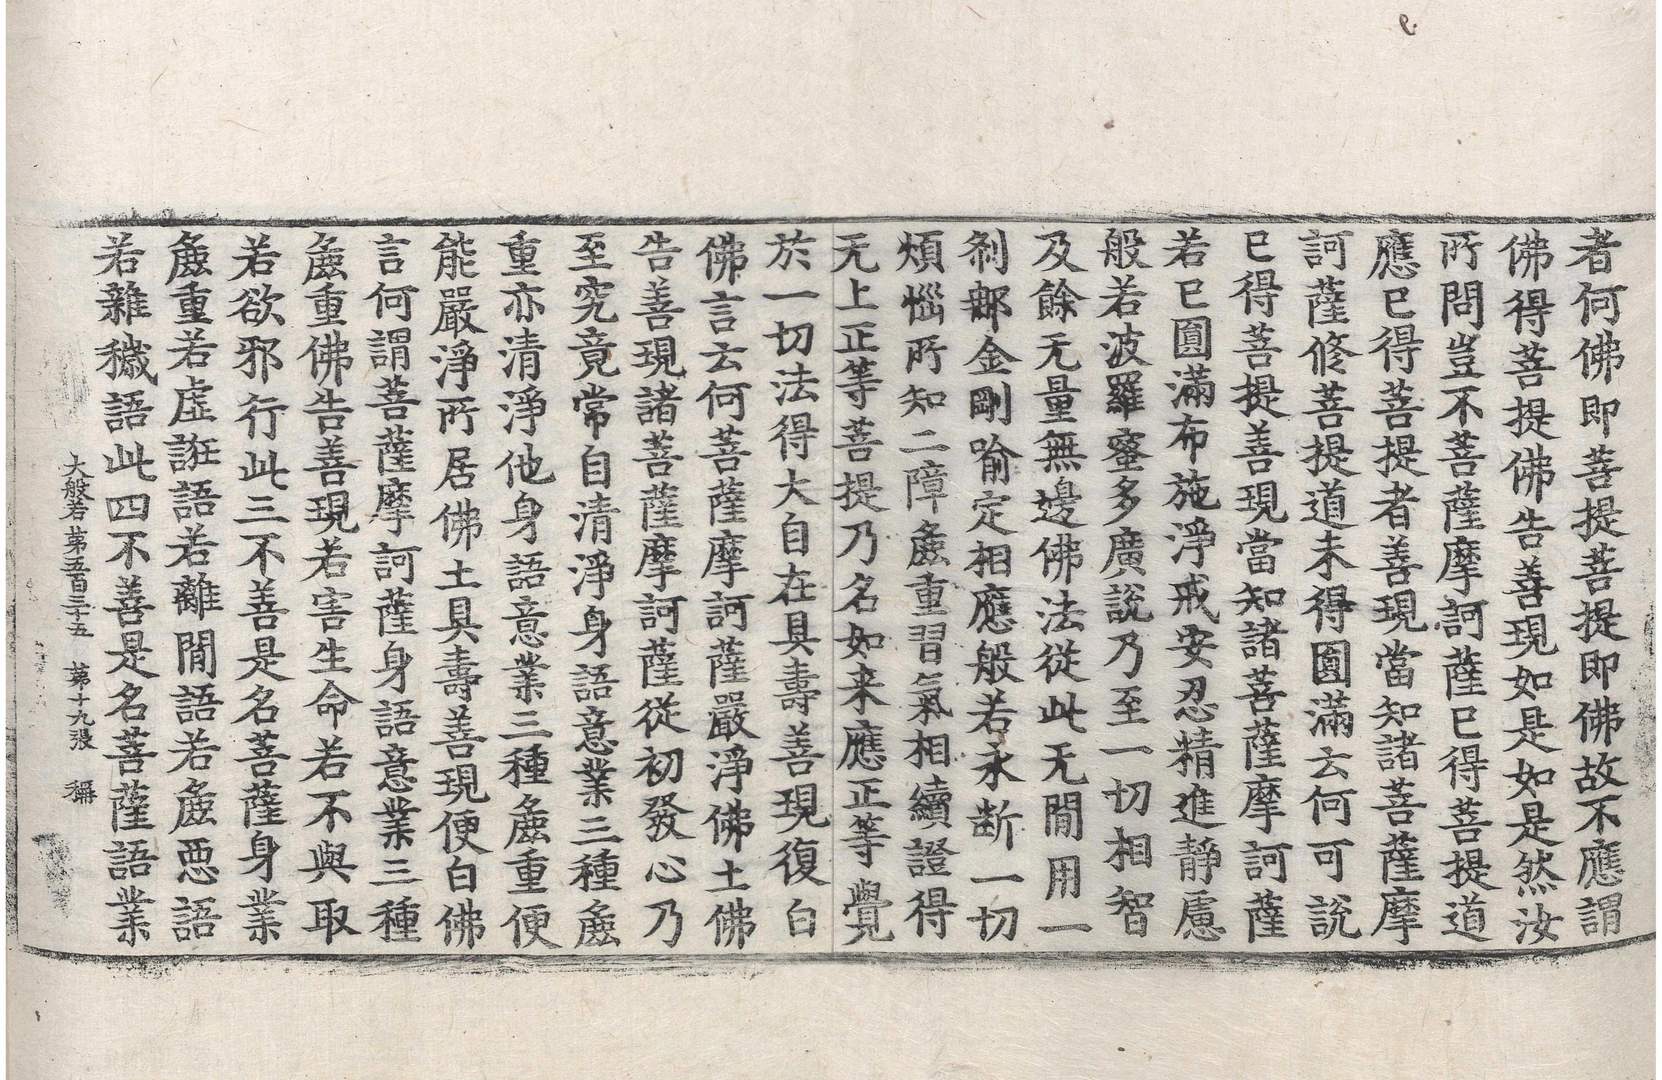 者何佛即菩提菩提即佛故不應謂
佛得菩提佛告善現如是如是然汝
所問豈不菩薩摩訶薩已得菩提道
應已得菩提者善現當知諸菩薩摩
訶薩修菩提道未得圓滿云何可說
已得菩提善現當知諸菩薩摩訶薩
若已圓滿布施淨戒安忍精進靜慮
般若波羅蜜多廣說乃至一切相智
及餘无量無邊佛法從此无間用一
剎那金剛喻定相應般若永斷一切
煩惱所知二障麁重習氣相續證得
无上正等菩提乃名如来應正等覺
於一切法得大自在具壽善現復白
佛言云何菩薩摩訶薩嚴淨佛土佛
告善現諸菩薩摩訶薩從初發心乃
至究竟常自清淨身語意業三種麁
重亦清淨他身語意業三種麁重便
能嚴淨所居佛土具壽善現便白佛
言何謂菩薩摩訶薩身語意業三種
麁重佛告善現若害生命若不與取
若欲邪行此三不善是名菩薩身業
麁重若虛誑語若離間語若麁惡語
若雜穢語此四不善是名菩薩語業
大般若第五百三十五 第十九張